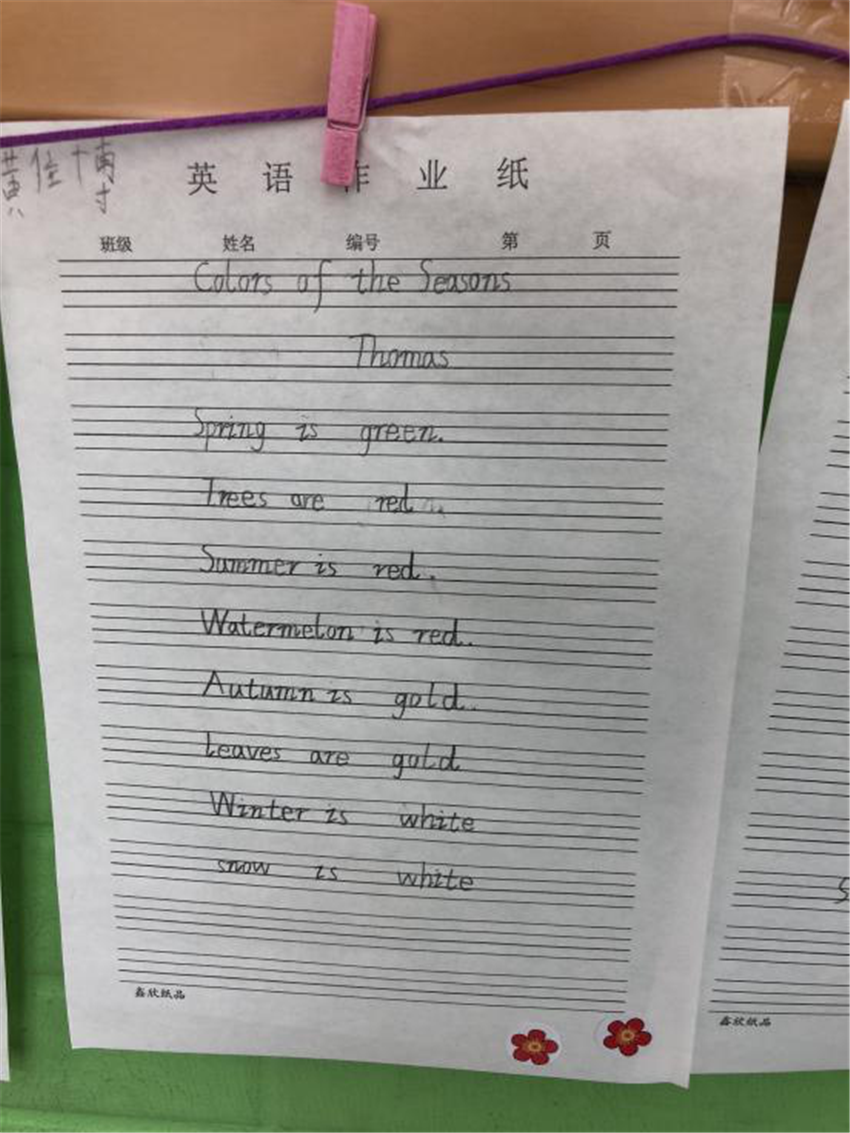 黄佳博
英语作业纸
班级 姓名 编号 第 页
Colors of the Seasons
Thomas
Spring is green.
Trees are red.
Summer is red.
Watermelon is red.
Autumn is gold.
Leaves are gold
Winter is white
snow is white
鑫欣纸品
鑫欣纸品